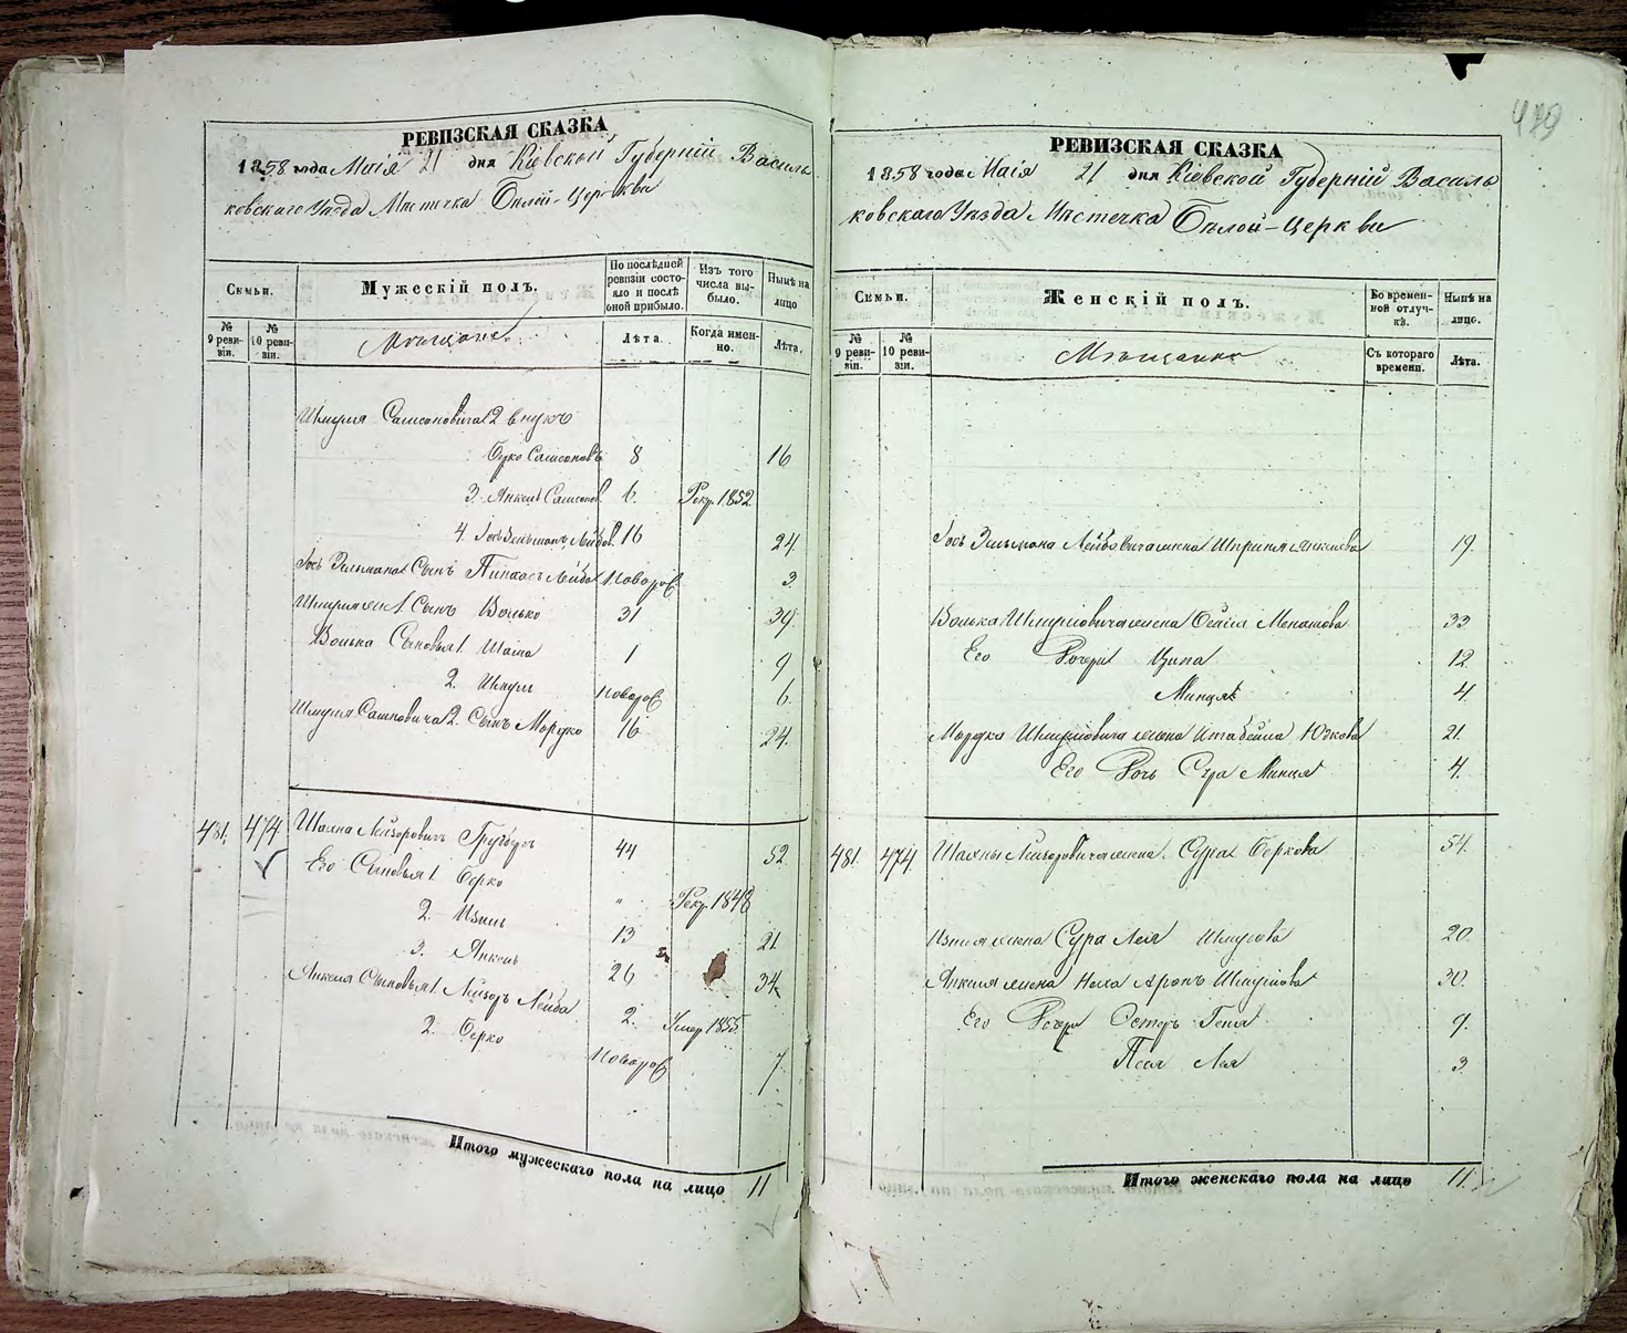 479
РЕВИЗСКАЯ СКАЗКА
1858 года Маія 21 дня Кіевской Губерніи Василь
ковскаго Уѣзда Мѣстечка Бѣлой-Церкви
Семьи.
Мужескій полъ.
По послѣдней ревизіи состояло и послѣ оной прибыло.
Изъ того числа выбыло.
Нынѣ на лицо
№ 9 ревизіи.
№ 10 ревизіи.
Мѣщане
Лѣта.
Когда именно.
Лѣта.
Шмуля Самсоновича 2 внукъ
Берко Самсоновъ 8 16
3. Янкель Самсонов. 6. Рекр. 1852
4. Іось Зельманъ Лейбов. 16 24.
Іось Зельмана Сынъ Пинхасъ Лейба Новорож. 3.
Шмуля 1. Сынъ Волько 31 39.
Волька Сыновья 1. Шаia 1 9
2. Шмуль Новорож. 6.
Шмуля Самсовича 2. Сынъ Мордко 16 24.
481. 474. Шахна Лейзоровичъ 44 52.
Его Сыновья 1. Берко " Рекр. 1848
2. Изиль 13 21.
3. Янкель 26 34.
Янкеля Сыновья 1. Лейзоръ Лейба 2. Умер. 1855.
2. Берко Новорож. 7.
Итого мужескаго пола на лицо 11
РЕВИЗСКАЯ СКАЗКА
1858 года Маія 21 дня Кіевской Губерніи Василь
ковскаго Уѣзда Мѣстечка Бѣлой-Церкви
Семьи.
Женскій полъ.
Во временной отлучкѣ.
Нынѣ на лицо.
№ 9 ревизіи.
№ 10 ревизіи.
Мѣщанки
Съ котораго времени.
Лѣта.
Іось Зельмана Лейбовича жена Шприня Янкелева 19.
Волька Шмулiовича жена Бейла Менашова 33.
Его Дочери Ципа 12.
Минця 4.
Мордка Шмулiовича жена Ита Бейла Юдкова 21.
Его Дочь Сура Минця 4.
481. 474. Шахны Лейзоровича жена Сура Беркова 54.
Изиля жена Сура Лея Шмулова 20.
Янкеля жена Неха Аронъ Шмулiова 30.
Его Дочери Эстеръ Геня 9.
Песя Лея 3.
Итого женскаго пола на лицо 11.